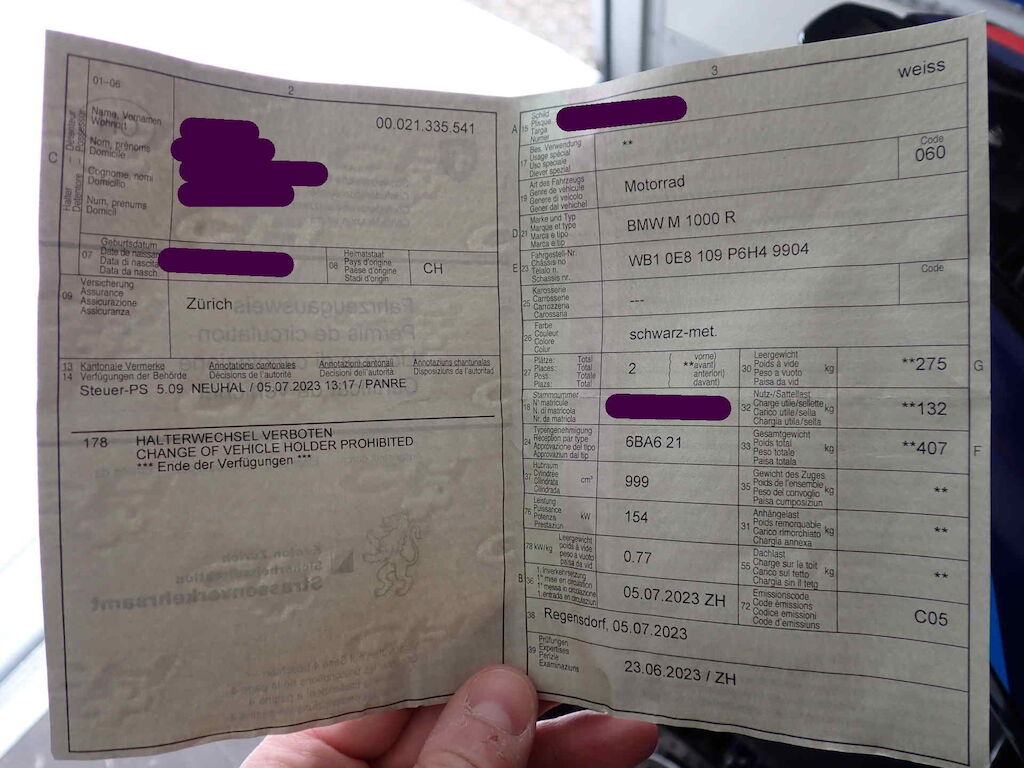 2
01-06
Halter Détenteur
Detentore Possessur
Name, Vornamen
Wohnort
Nom, prénoms
Domicile
Cognome, nomi
Domicilio
Num, prenums
Domicil
00.021.335.541
C
07
Geburtsdatum
Date de naissan
Data di nascita
Data da nasch.
08
Heimatstaat
Pays d'origine
Paese d'origine
Stadi d'origin
CH
09
Versicherung
Assurance
Assicurazione
Assicuranza
Zürich
13
14
Kantonale Vermerke
Verfügungen der Behörde
Annotations cantonales
Décisions de l'autorité
Annotazioni cantonali
Decisioni dell'autorità
Annotaziuns chantunalas
Disposiziuns da l'autoritad
Steuer-PS 5.09 NEUHAL / 05.07.2023 13:17 / PANRE
178 HALTERWECHSEL VERBOTEN
CHANGE OF VEHICLE HOLDER PROHIBITED
*** Ende der Verfügungen ***
Fahrzeugausweis
Permis de circulation
Kanton Zürich
Sicherheitsdirektion
Strassenverkehrsamt
3
weiss
A 15
Schild
Plaque
Targa
Numer
17
Bes. Verwendung
Usage spécial
Uso speciale
Diever spezial
**
Code
060
19
Art des Fahrzeugs
Genre de véhicule
Genere di veicolo
Gener dal vehichel
Motorrad
D 21
Marke und Typ
Marque et type
Marca e tipo
Marca e tip
BMW M 1000 R
E 23
Fahrgestell-Nr.
Châssis no
Telaio n.
Schassis nr.
WB1 0E8 109 P6H4 9904
25
Karosserie
Carrosserie
Carrozzeria
Carossaria
---
Code
26
Farbe
Couleur
Colore
Colur
schwarz-met.
27
Plätze: Total
Places: Total
Posti: Totale
Plazs: Total
2
vorne)
**avant)
anteriori)
davant)
30
Leergewicht
Poids à vide
Peso a vuoto
Paisa da vid
kg
**275
G
18
Stammnummer
N° matricule
N. di matricola
Nr. da matricla
32
Nutz-/Sattellast
Charge utile/sellette
Carico utile/sella
Chargia utila/sella
kg
**132
24
Typengenehmigung
Réception par type
Approvazione del tipo
Approvaziun dal tip
6BA6 21
33
Gesamtgewicht
Poids total
Peso totale
Paisa totala
kg
**407
F
37
Hubraum
Cylindrée
Cilindrata
Cilindrada
cm³
999
35
Gewicht des Zuges
Poids de l'ensemble
Peso del convoglio
Paisa cumposiziun
kg
**
76
Leistung
Puissance
Potenza
Prestaziun
kW
154
31
Anhängelast
Poids remorquable
Carico rimorchiato
Chargia annexa
kg
**
78 kW/kg
Leergewicht
poids à vide
peso a vuoto
paisa da vid
0.77
55
Dachlast
Charge sur le toit
Carico sul tetto
Chargia sin il tetg
kg
**
B 36
1. Inverkehrsetzung
1re mise en circulation
1a messa in circolazione
1. entrada en circulaziun
05.07.2023 ZH
72
Emissionscode
Code émissions
Codice emissioni
Code d'emissiuns
C05
38
Regensdorf, 05.07.2023
39
Prüfungen
Expertises
Perizie
Examinaziuns
23.06.2023 / ZH